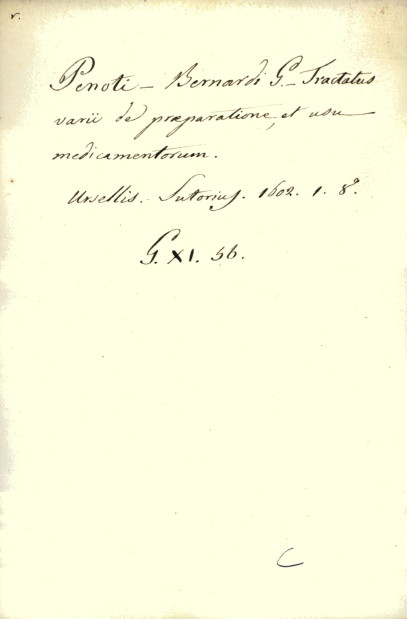 r.
Penoti – Bernardi G – Tractatus
varii de præparatione, et usu
medicamentorum.
Ursellis. Sutorius. 1602. 1. 8º.
G. XI. 56.
C